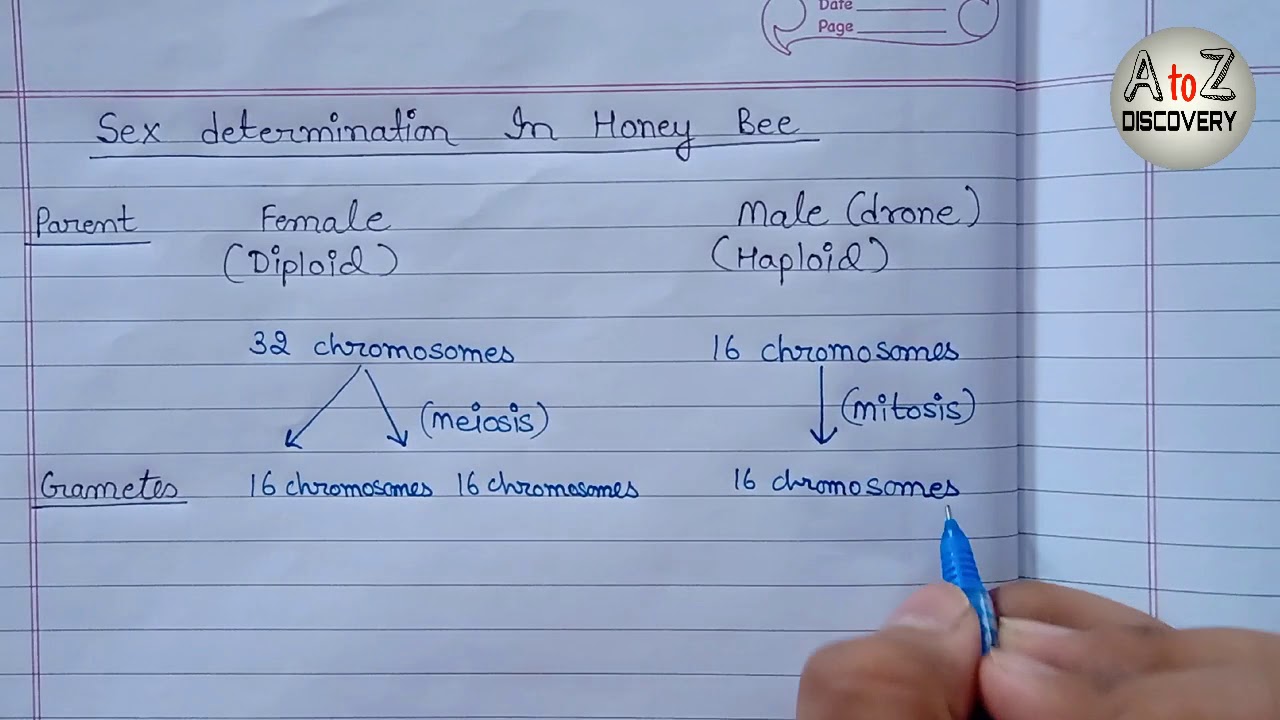 Date
Page
A to Z
DISCOVERY
Sex determination In Honey Bee
Parent Female Male (drone)
(Diploid) (Haploid)
32 chromosomes 16 chromosomes
(meiosis) (mitosis)
Grametes 16 chromosomes 16 chromosomes 16 chromosomes